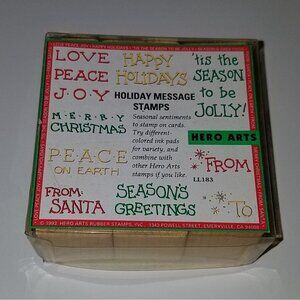 LOVE PEACE JOY • HAPPY HOLIDAYS • 'TIS THE SEASON TO BE JOLLY • SEASON'S
LOVE
PEACE
JOY
HAPPY
HOLIDAYS
'tis the
SEASON
to be
JOLLY!
HOLIDAY MESSAGE
STAMPS
Seasonal sentiments
to stamp on cards.
Try different-
colored ink pads
for variety, and
combine with
other Hero Arts
stamps if you like.
LL183
HERO ARTS
MERRY
CHRISTMAS
PEACE
ON EARTH
FROM:
SANTA
SEASON'S
GREETINGS
FROM
TO
HERO ARTS RUBBER STAMPS, INC. 1343 POWELL STREET, EMERYVILLE, CA 94608